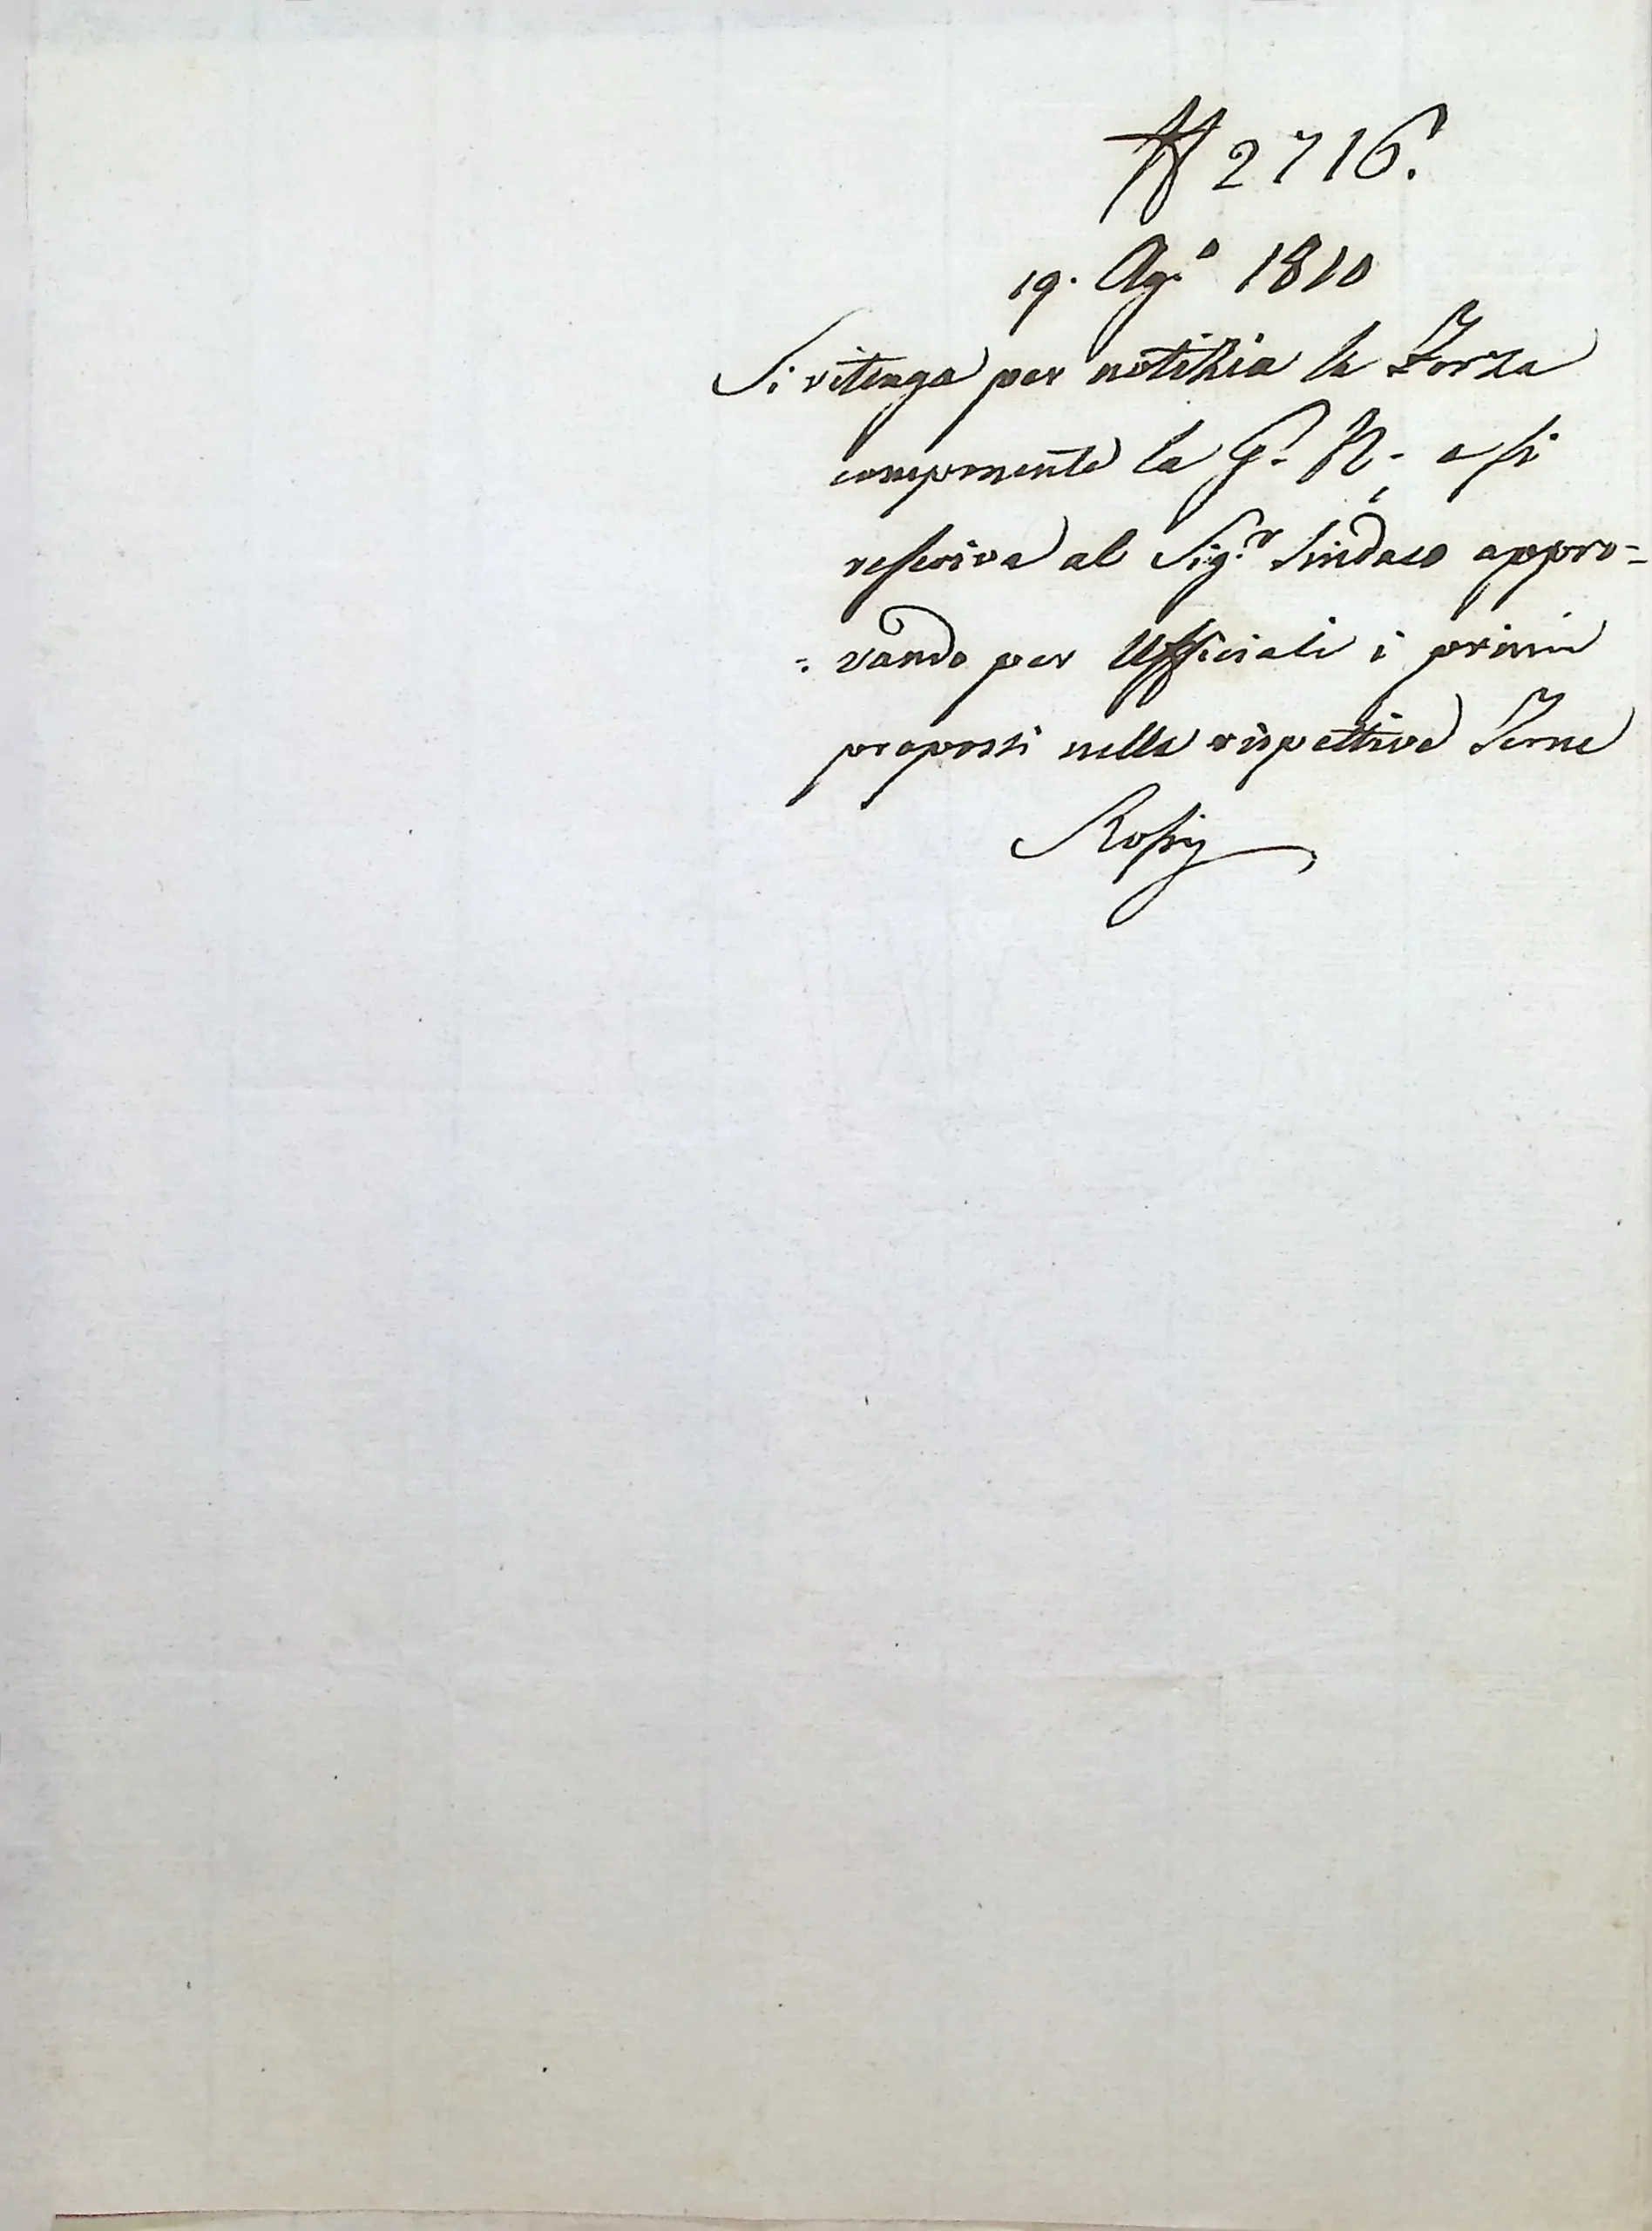 N 2716.
19. Ag.o 1810
Si ritenga per notizia la Forza
componente la G. N. e si
rescriva al Sig.r Sindaco appro=
=vando per Ufficiali i primi
proposti nelle rispettive Terne
Rossi